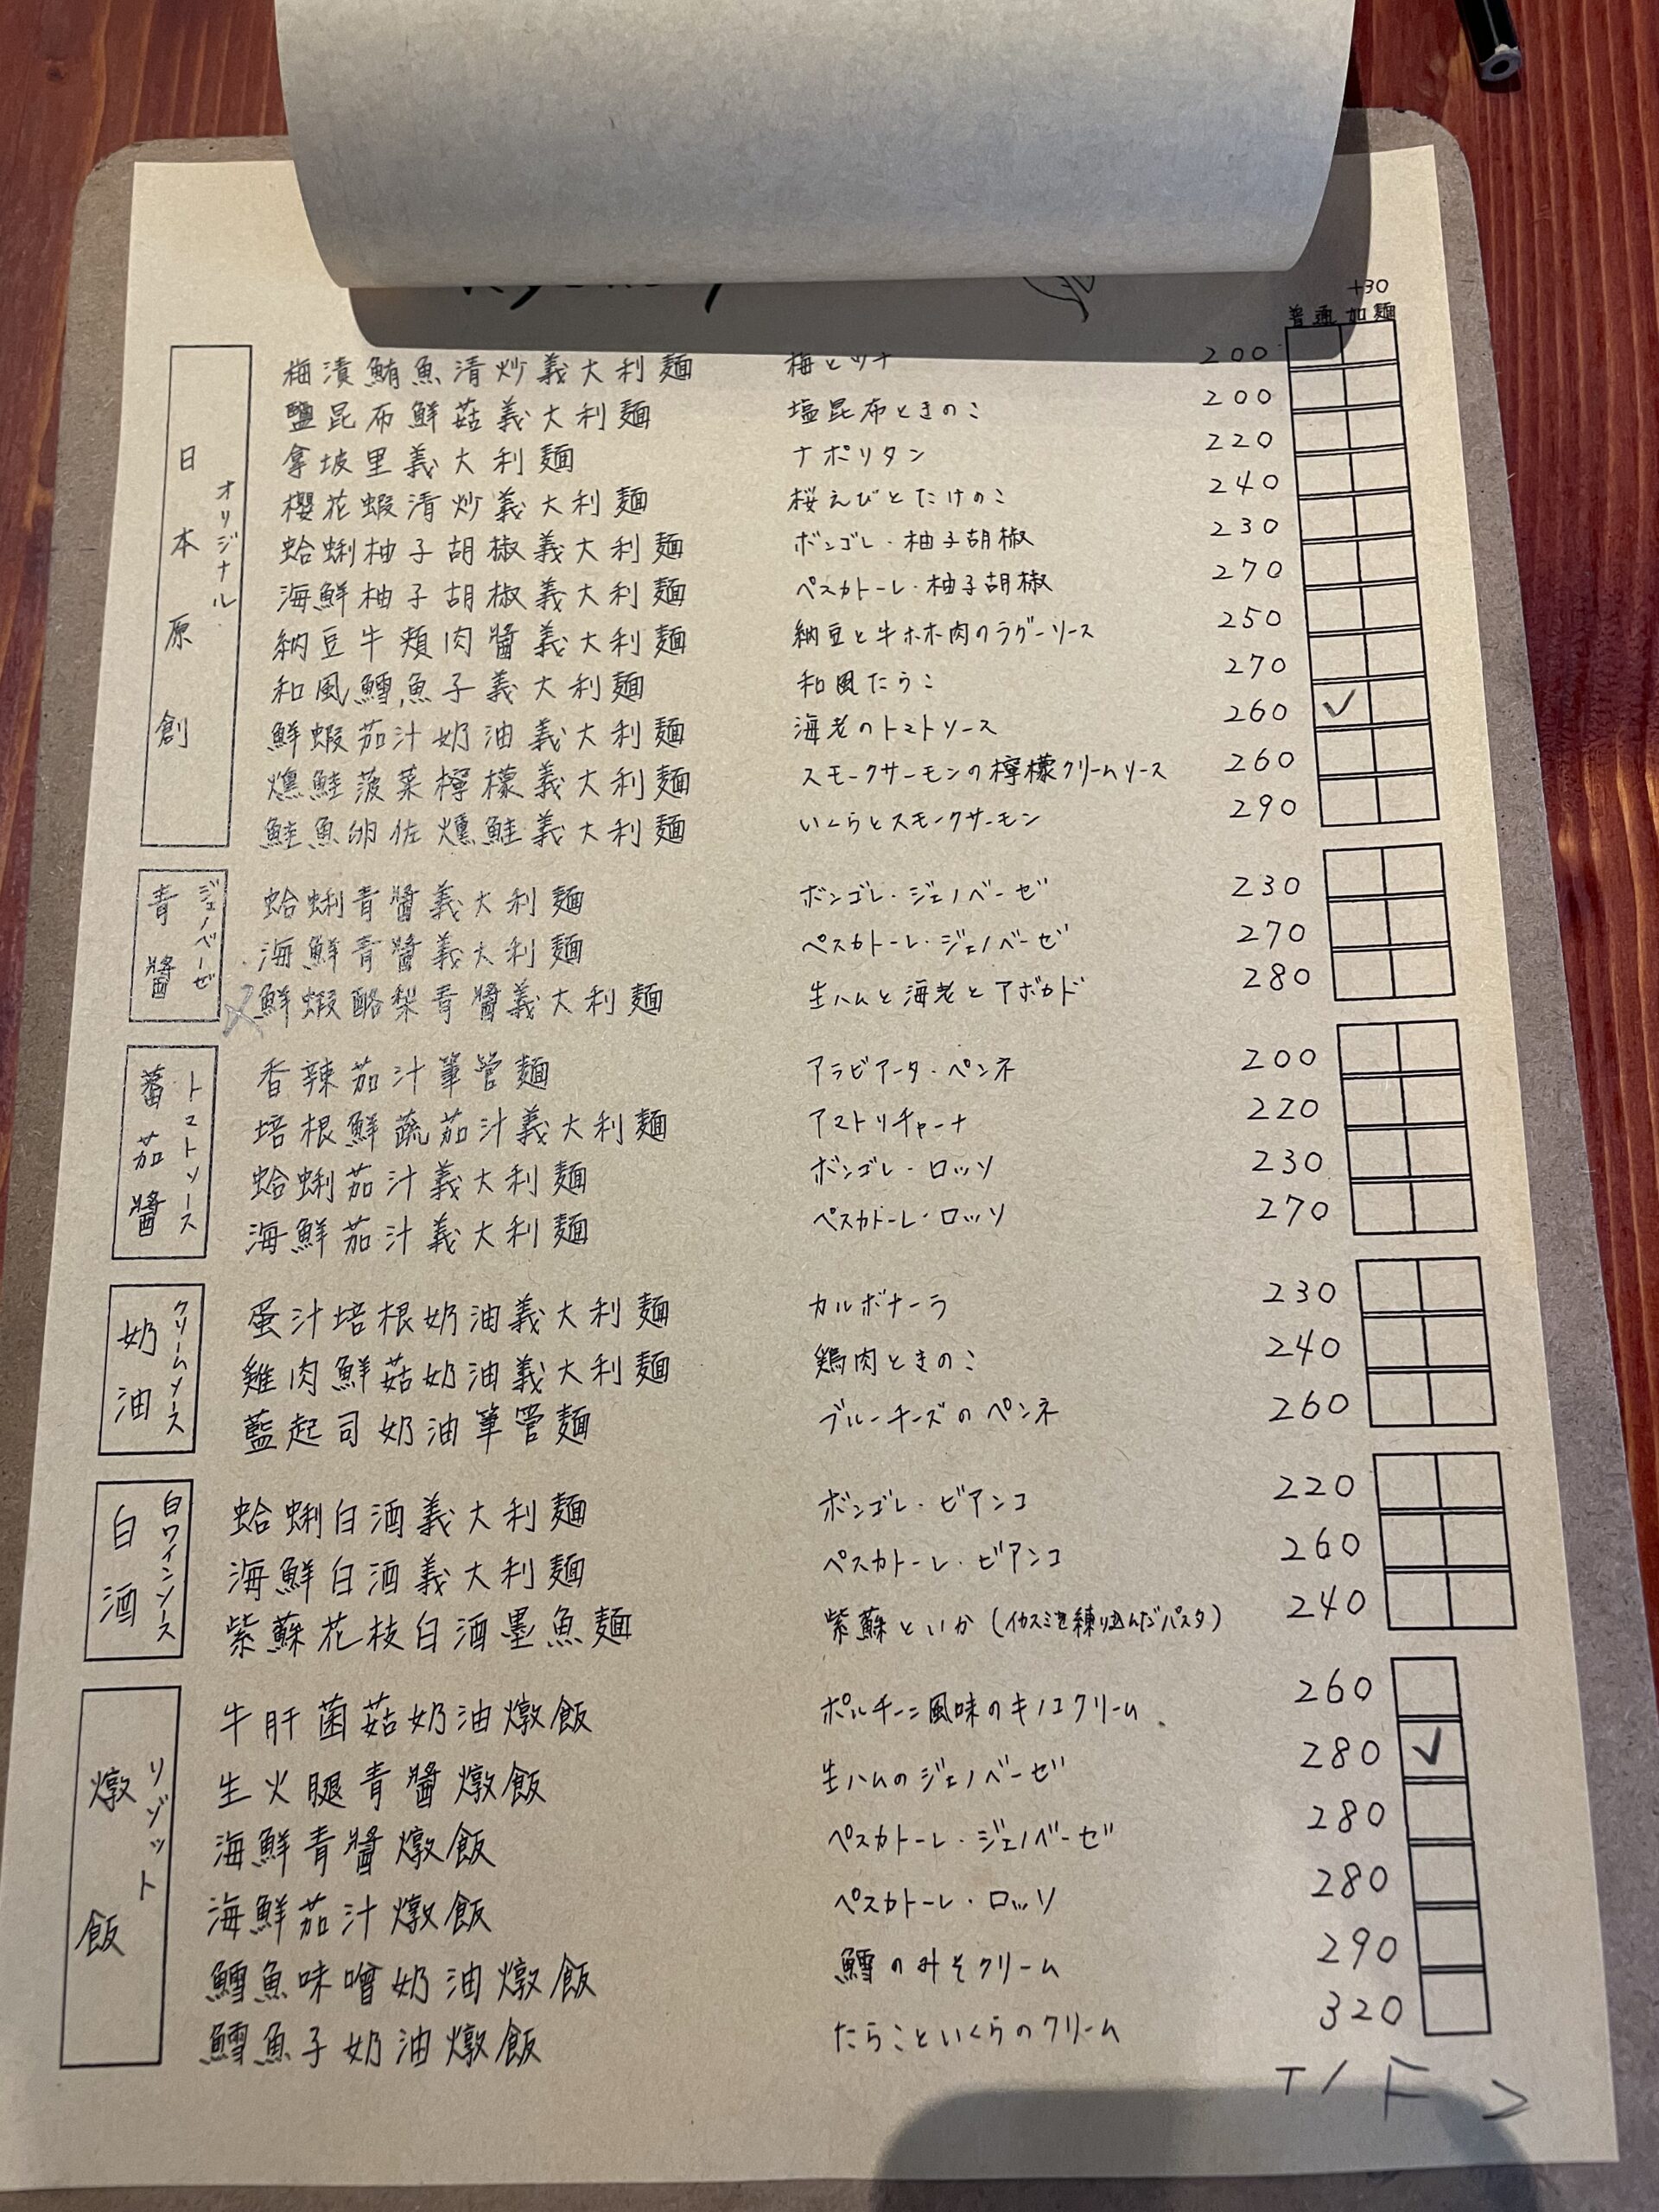 +30
普通 加麵
日本原創 オリジナル
梅漬鮪魚清炒義大利麵 梅とツナ 200
鹽昆布鮮菇義大利麵 塩昆布ときのこ 200
拿坡里義大利麵 ナポリタン 220
櫻花蝦清炒義大利麵 桜えびとたけのこ 240
蛤蜊柚子胡椒義大利麵 ボンゴレ・柚子胡椒 230
海鮮柚子胡椒義大利麵 ペスカトーレ・柚子胡椒 270
納豆牛頰肉醬義大利麵 納豆と牛ホホ肉のラグーソース 250
和風鱈魚子義大利麵 和風たらこ 270
鮮蝦茄汁奶油義大利麵 海老のトマトソース 260 ✓
燻鮭菠菜檸檬義大利麵 スモークサーモンの檸檬クリームソース 260
鮭魚卵佐燻鮭義大利麵 いくらとスモークサーモン 290
青醬 ジェノベーゼ
蛤蜊青醬義大利麵 ボンゴレ・ジェノベーゼ 230
海鮮青醬義大利麵 ペスカトーレ・ジェノベーゼ 270
鮮蝦酪梨青醬義大利麵 生ハムと海老とアボカド 280
蕃茄醬 トマトソース
香辣茄汁筆管麵 アラビアータ・ペンネ 200
培根鮮蔬茄汁義大利麵 アマトリチャーナ 220
蛤蜊茄汁義大利麵 ボンゴレ・ロッソ 230
海鮮茄汁義大利麵 ペスカトーレ・ロッソ 270
奶油 クリームソース
蛋汁培根奶油義大利麵 カルボナーラ 230
雞肉鮮菇奶油義大利麵 鶏肉ときのこ 240
藍起司奶油筆管麵 ブルーチーズのペンネ 260
白酒 白ワインソース
蛤蜊白酒義大利麵 ボンゴレ・ビアンコ 220
海鮮白酒義大利麵 ペスカトーレ・ビアンコ 260
紫蘇花枝白酒墨魚麵 紫蘇といか（イカスミを練り込んだパスタ） 240
燉飯 リゾット
牛肝菌菇奶油燉飯 ポルチーニ風味のキノコクリーム 260
生火腿青醬燉飯 生ハムのジェノベーゼ 280 ✓
海鮮青醬燉飯 ペスカトーレ・ジェノベーゼ 280
海鮮茄汁燉飯 ペスカトーレ・ロッソ 280
鱈魚味噌奶油燉飯 鱈のみそクリーム 290
鱈魚子奶油燉飯 たらこといくらのクリーム 320